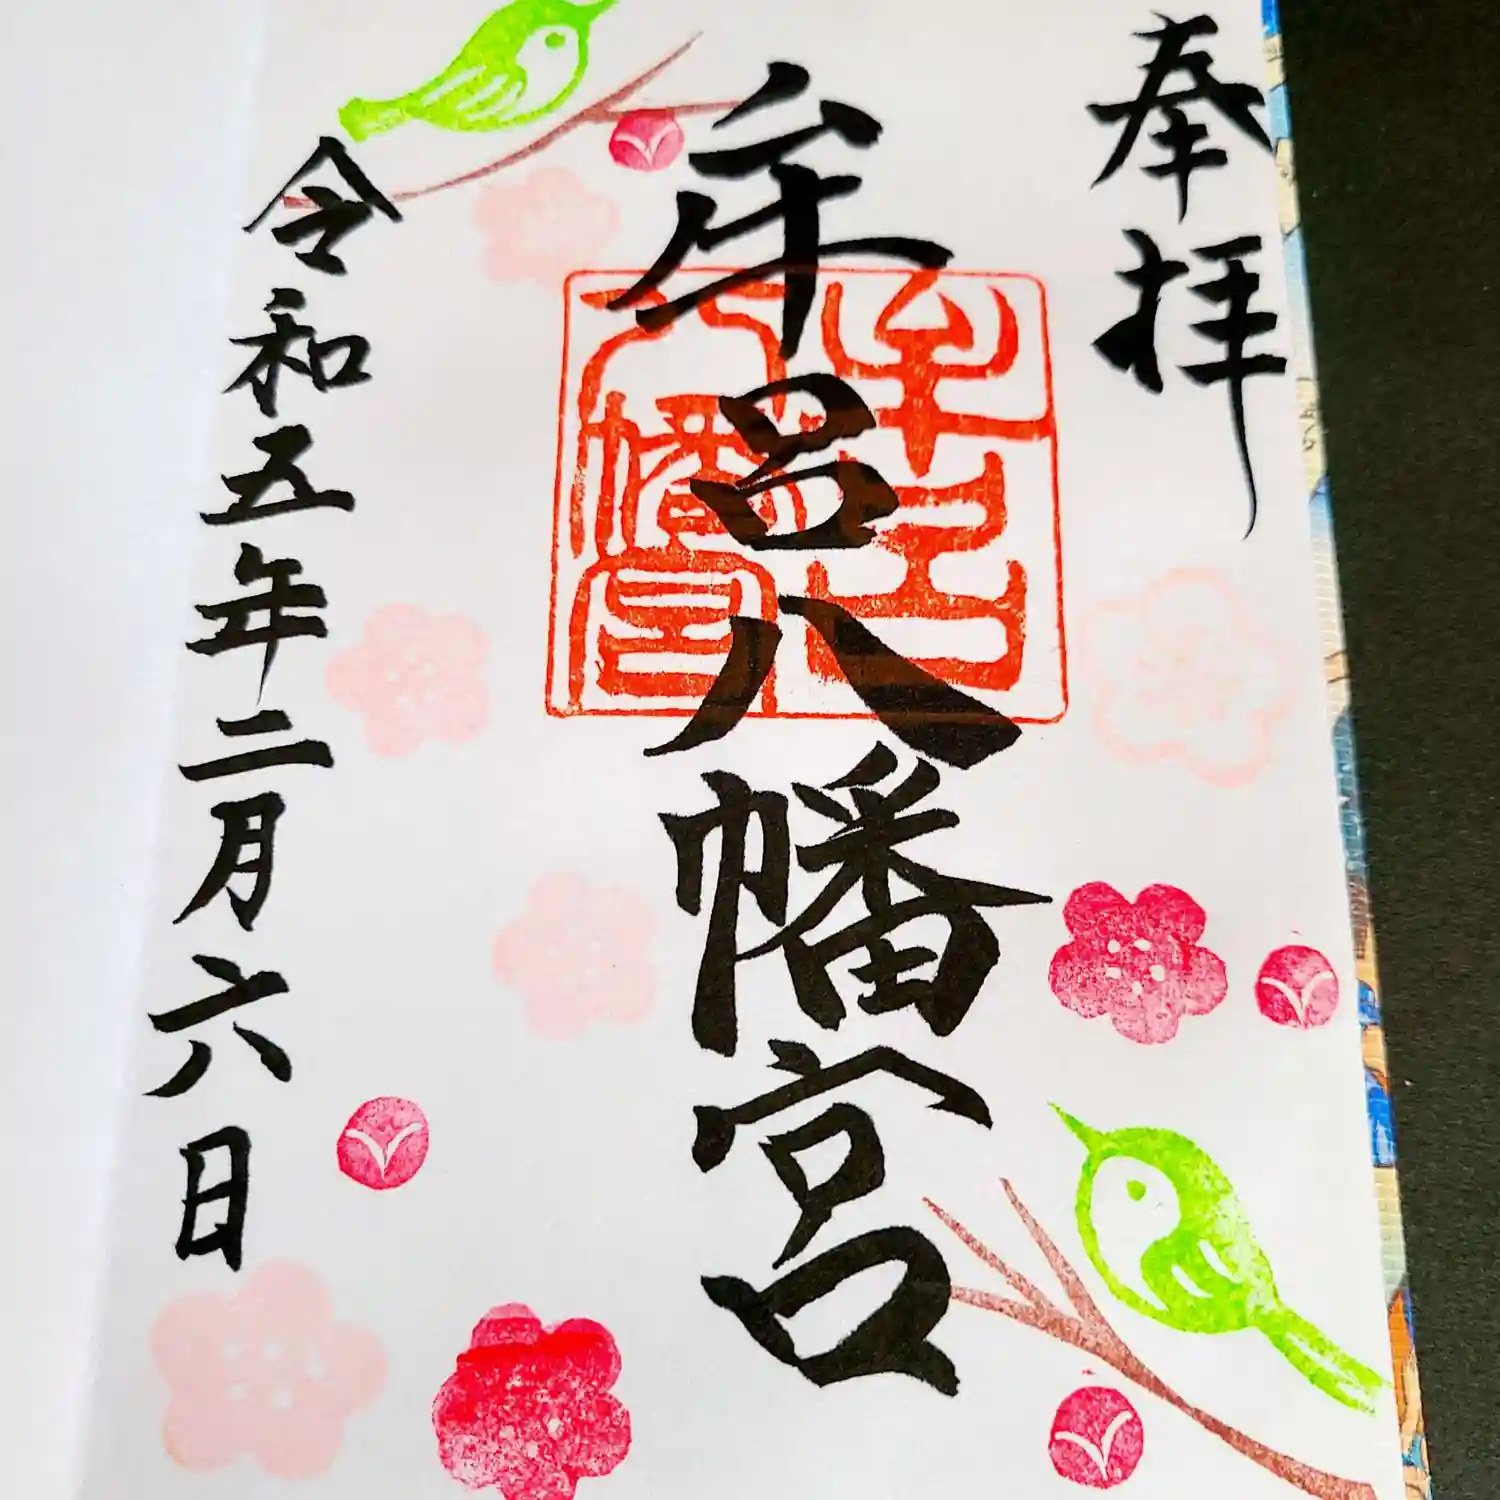 奉拝
牟呂八幡宮
牟呂
八幡宮
令和五年二月六日